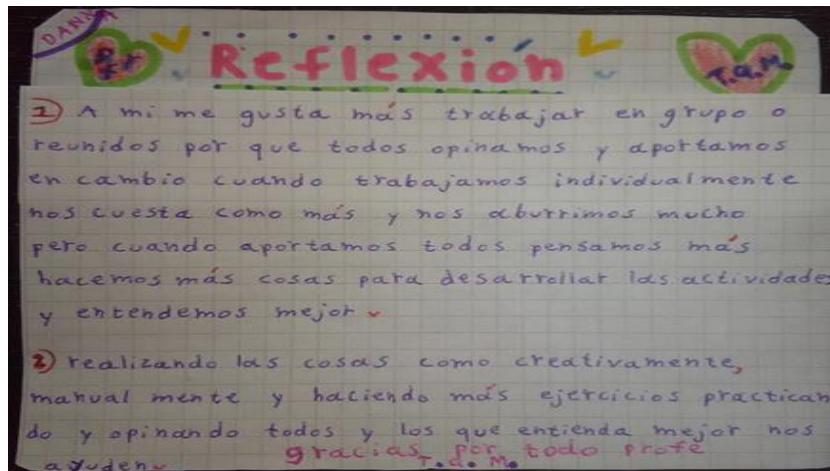 DANNA
Reflexión
T.Q.M.
1) A mi me gusta más trabajar en grupo o
reunidos por que todos opinamos y aportamos
en cambio cuando trabajamos individualmente
nos cuesta como más y nos aburrimos mucho
pero cuando aportamos todos pensamos más
hacemos más cosas para desarrollar las actividades
y entendemos mejor
2) realizando las cosas como creativamente,
manual mente y haciendo más ejercicios practican
do y opinando todos y los que entienda mejor nos
ayuden
gracias por todo profe
T.Q.M.